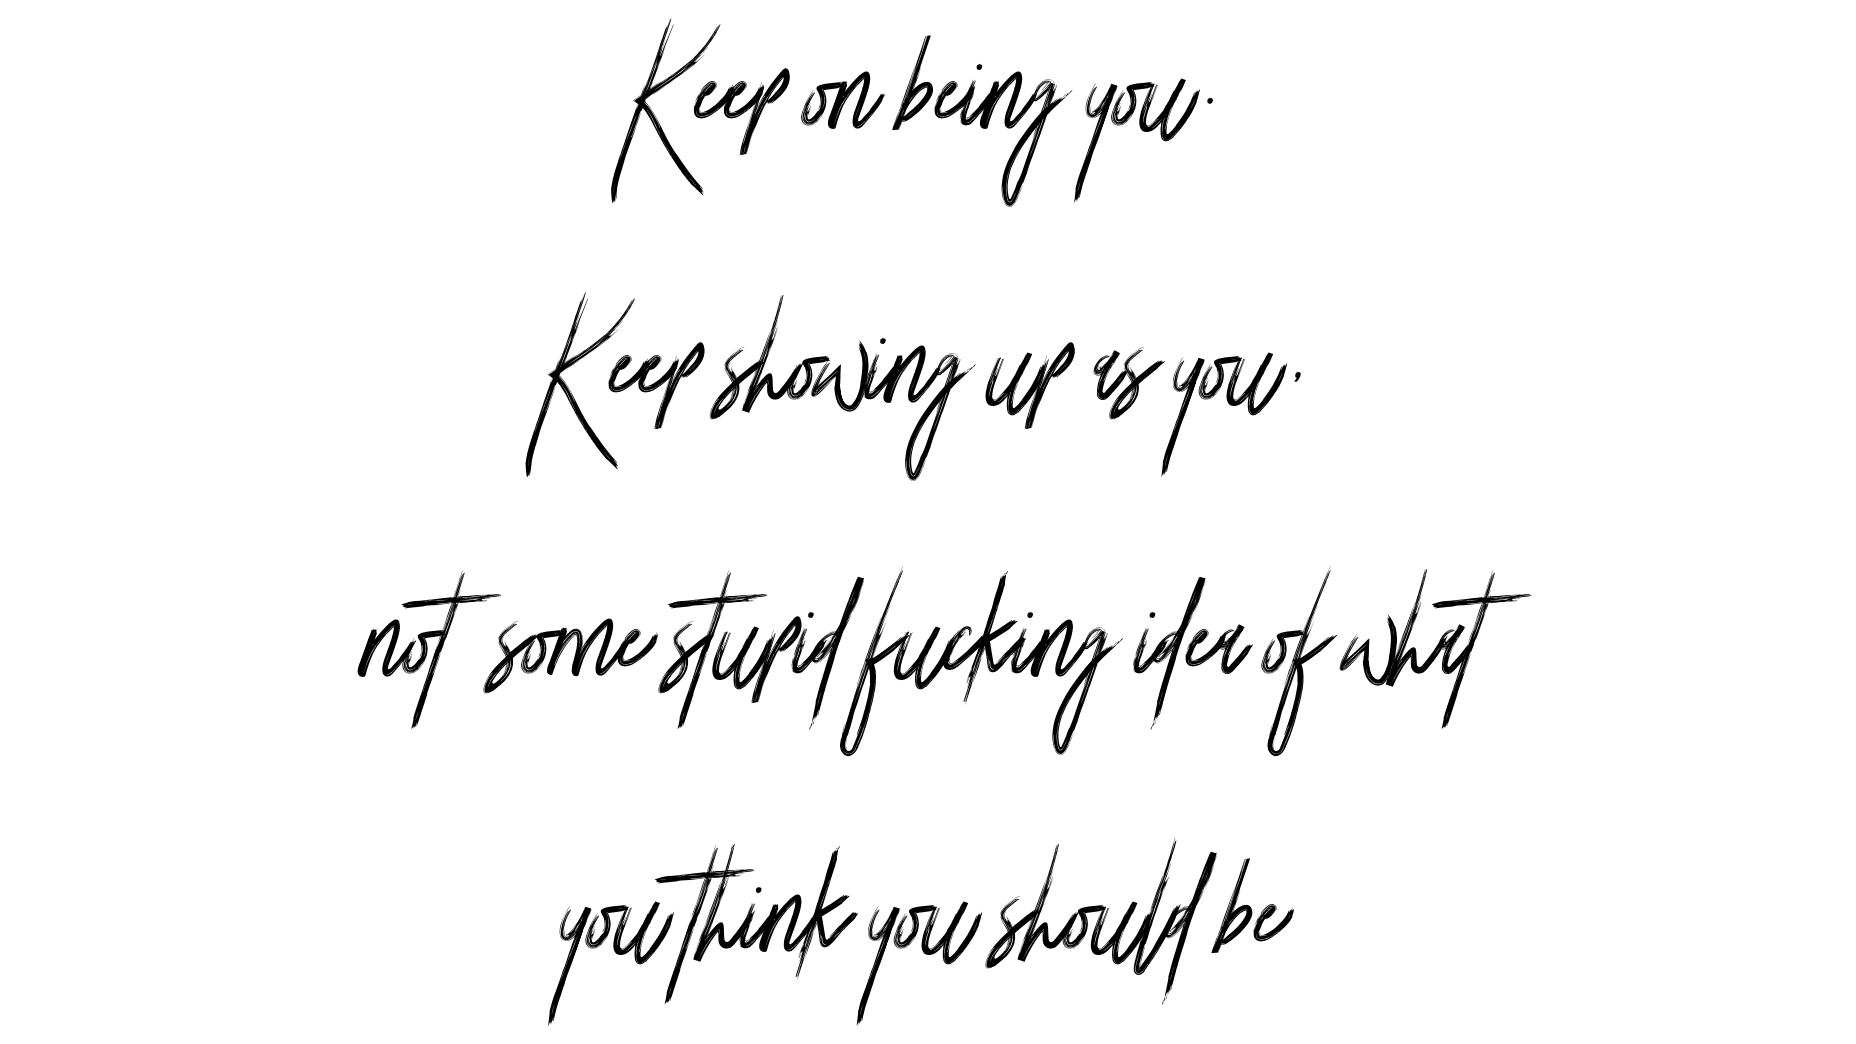 Keep on being you.
Keep showing up as you,
not some stupid fucking idea of what
you think you should be